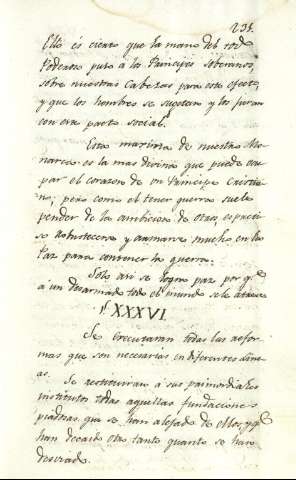 235.
Ello és cierto que la mano del todo
Poderoso puso á los Principes soberanos
sobre nuestras Cabezas para este efecto,
y que los hombres se sugetan y los juran
con este pacto social.
Esta maxima de nuestro Mo-
narca es la mas divina que puede ocu
par el corazon de un Principe Cristia-
no; pero como el tener guerra suele
pender de la ambicion de otros, es preci-
so robustecerse y armarse mucho en la
Paz para contener la guerra.
Solo asi se logra paz por q.e
á un desarmado todo el mundo se le atreve
§ XXXVI.
Se executaran todas las refor
mas que son necesarias en diferentes líne
as.
Se restituiran á sus primordiales
institutos todas aquellas fundaciones
piadosas que se han alejado de ellos, y q.e
han decaido otro tanto quanto se han
desviado.